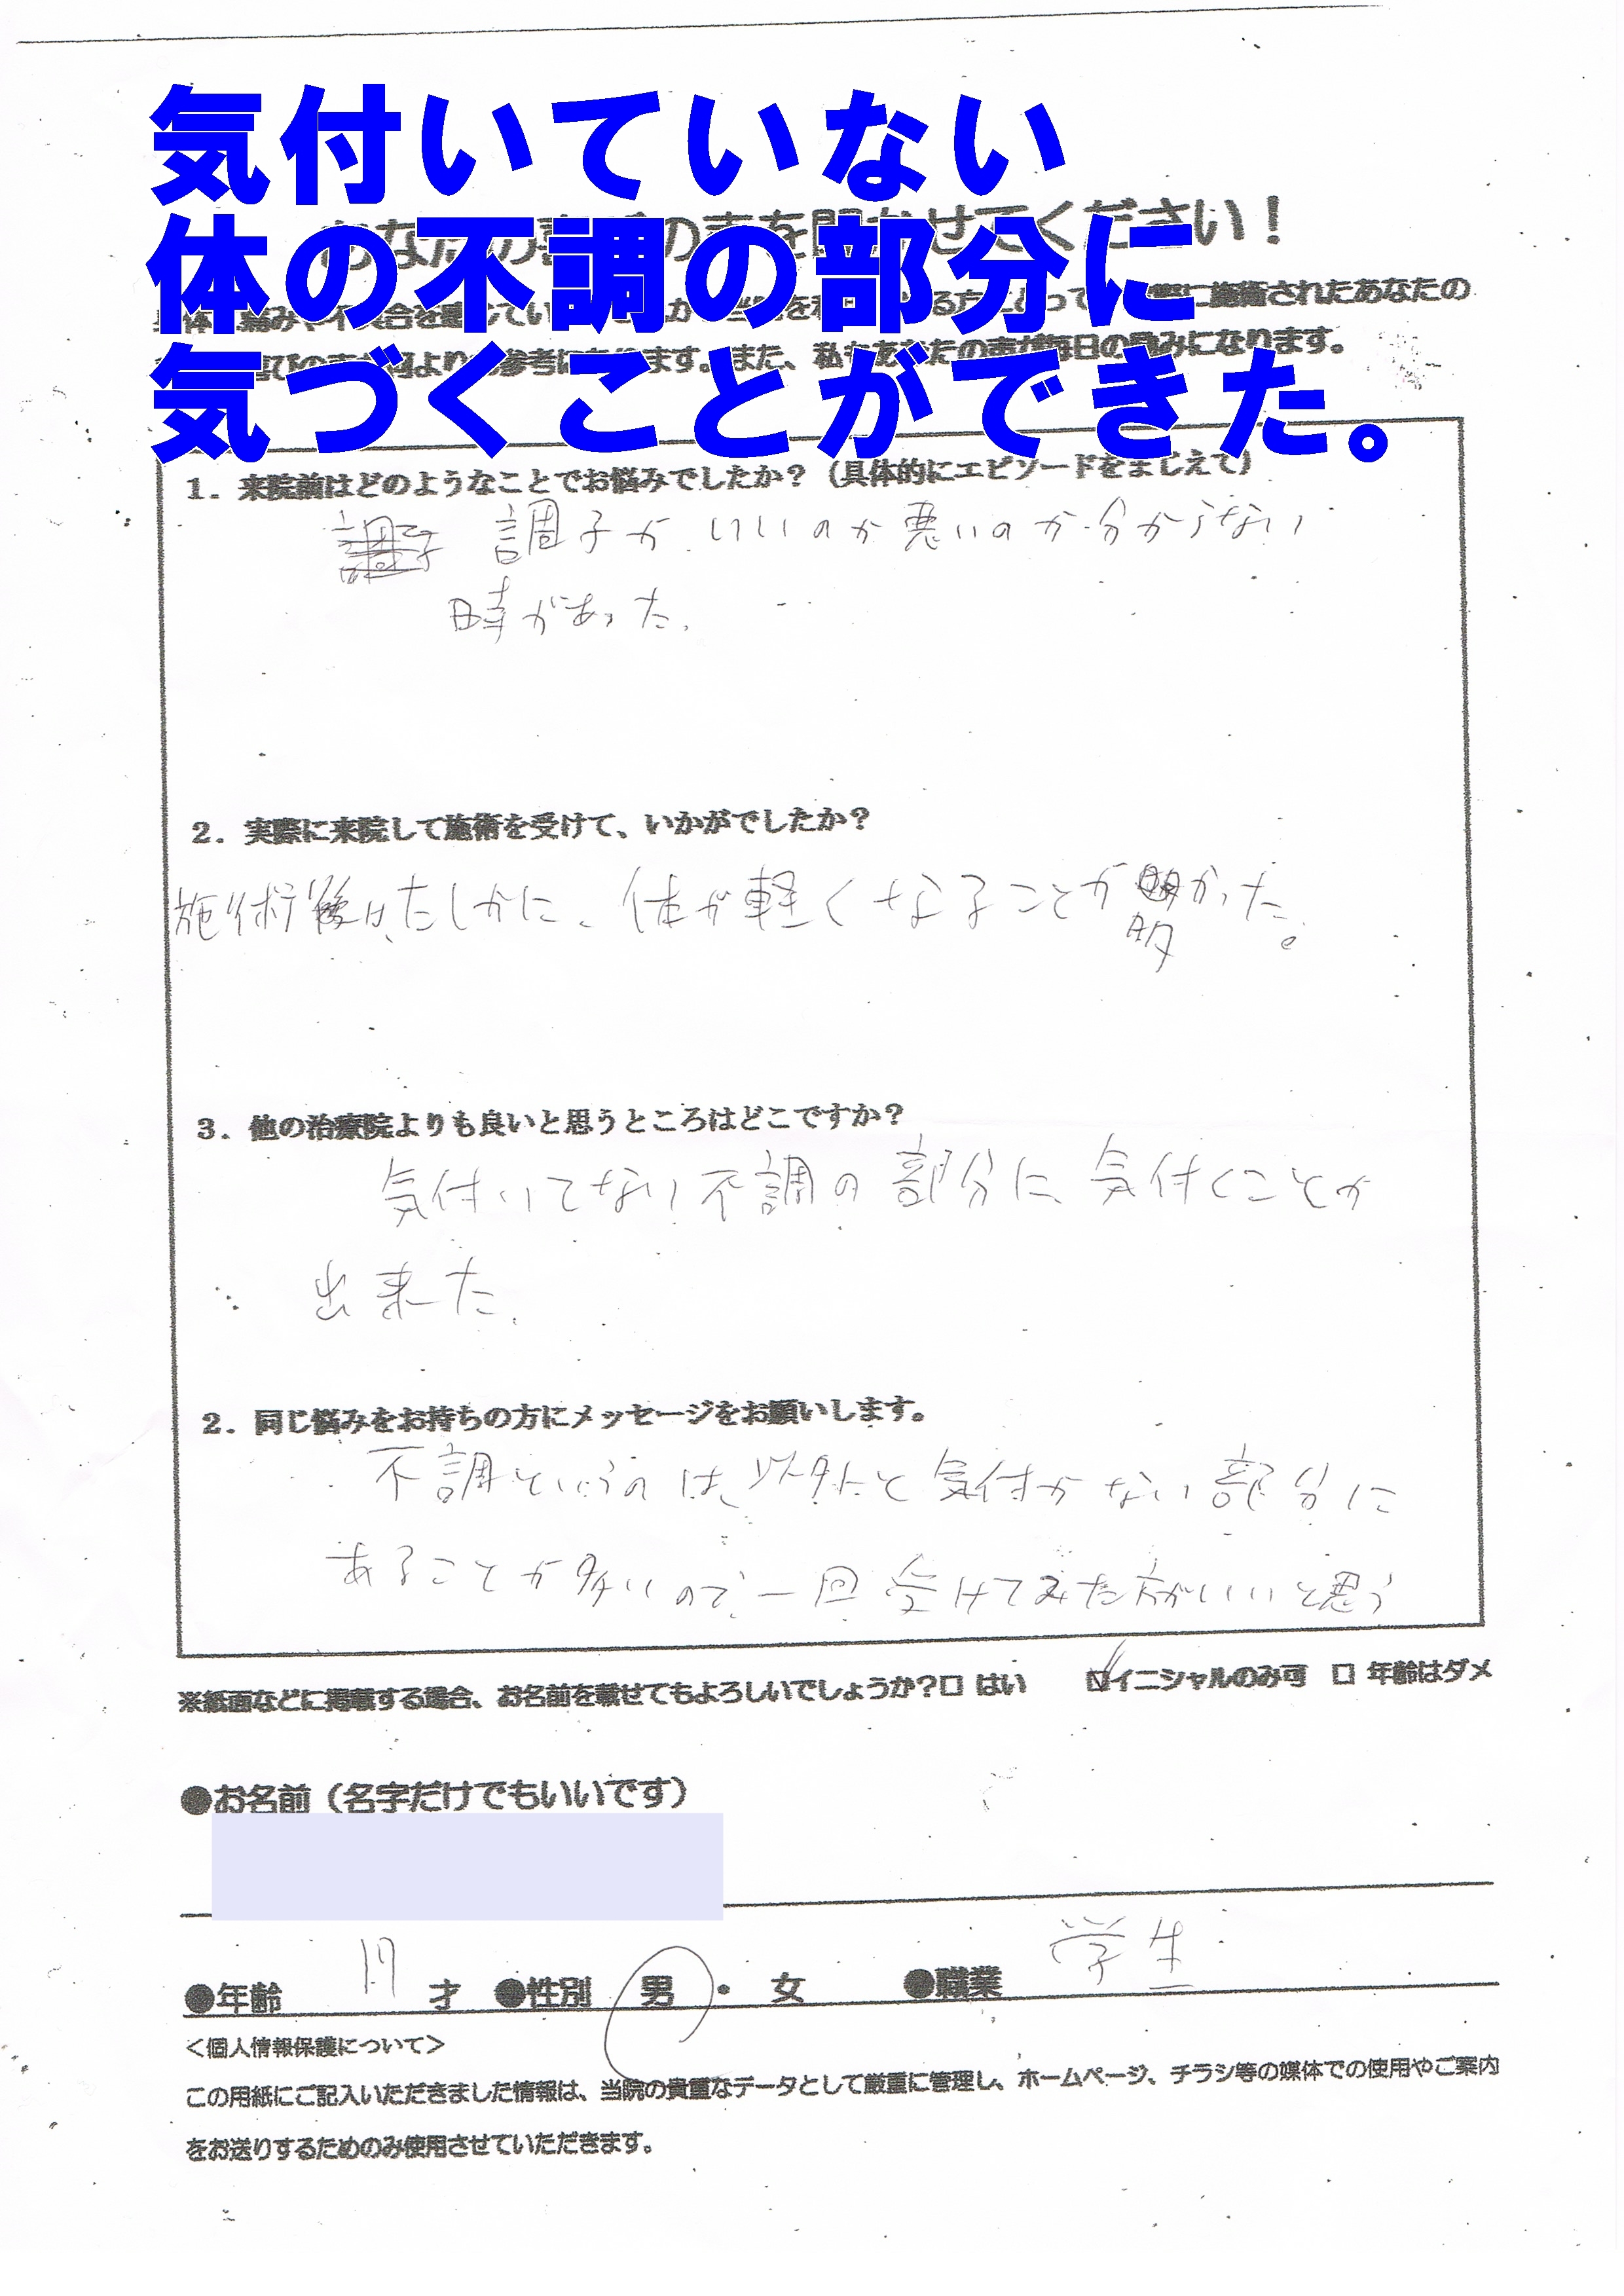 気付いていない
体の不調の部分に
気づくことができた。
の声を聞かせてください！
施術されたあなたの
参考になります。また、私もあなたの声が毎日の励みになります。
1．来院前はどのようなことでお悩みでしたか？（具体的にエピソードをまじえて）
調子が、いいのか悪いのか分からない
時があった。
2．実際に来院して施術を受けて、いかがでしたか？
施術後は、たしかに、体が軽くなることが かった。
3．他の治療院よりも良いと思うところはどこですか？
気付いてない不調の部分に、気付くことが
出来た。
2．同じ悩みをお持ちの方にメッセージをお願いします。
不調というのは、以外と気付かない部分に
あることが多いので、一回受けてみた方がいいと思う
※紙面などに掲載する場合、お名前を載せてもよろしいでしょうか？□ はい ☑イニシャルのみ可 □ 年齢はダメ
●お名前（名字だけでもいいです）
●年齢 17 才 ●性別 男 ・ 女 ●職業 学生
＜個人情報保護について＞
この用紙にご記入いただきました情報は、当院の貴重なデータとして厳重に管理し、ホームページ、チラシ等の媒体での使用やご案内
をお送りするためのみ使用させていただきます。